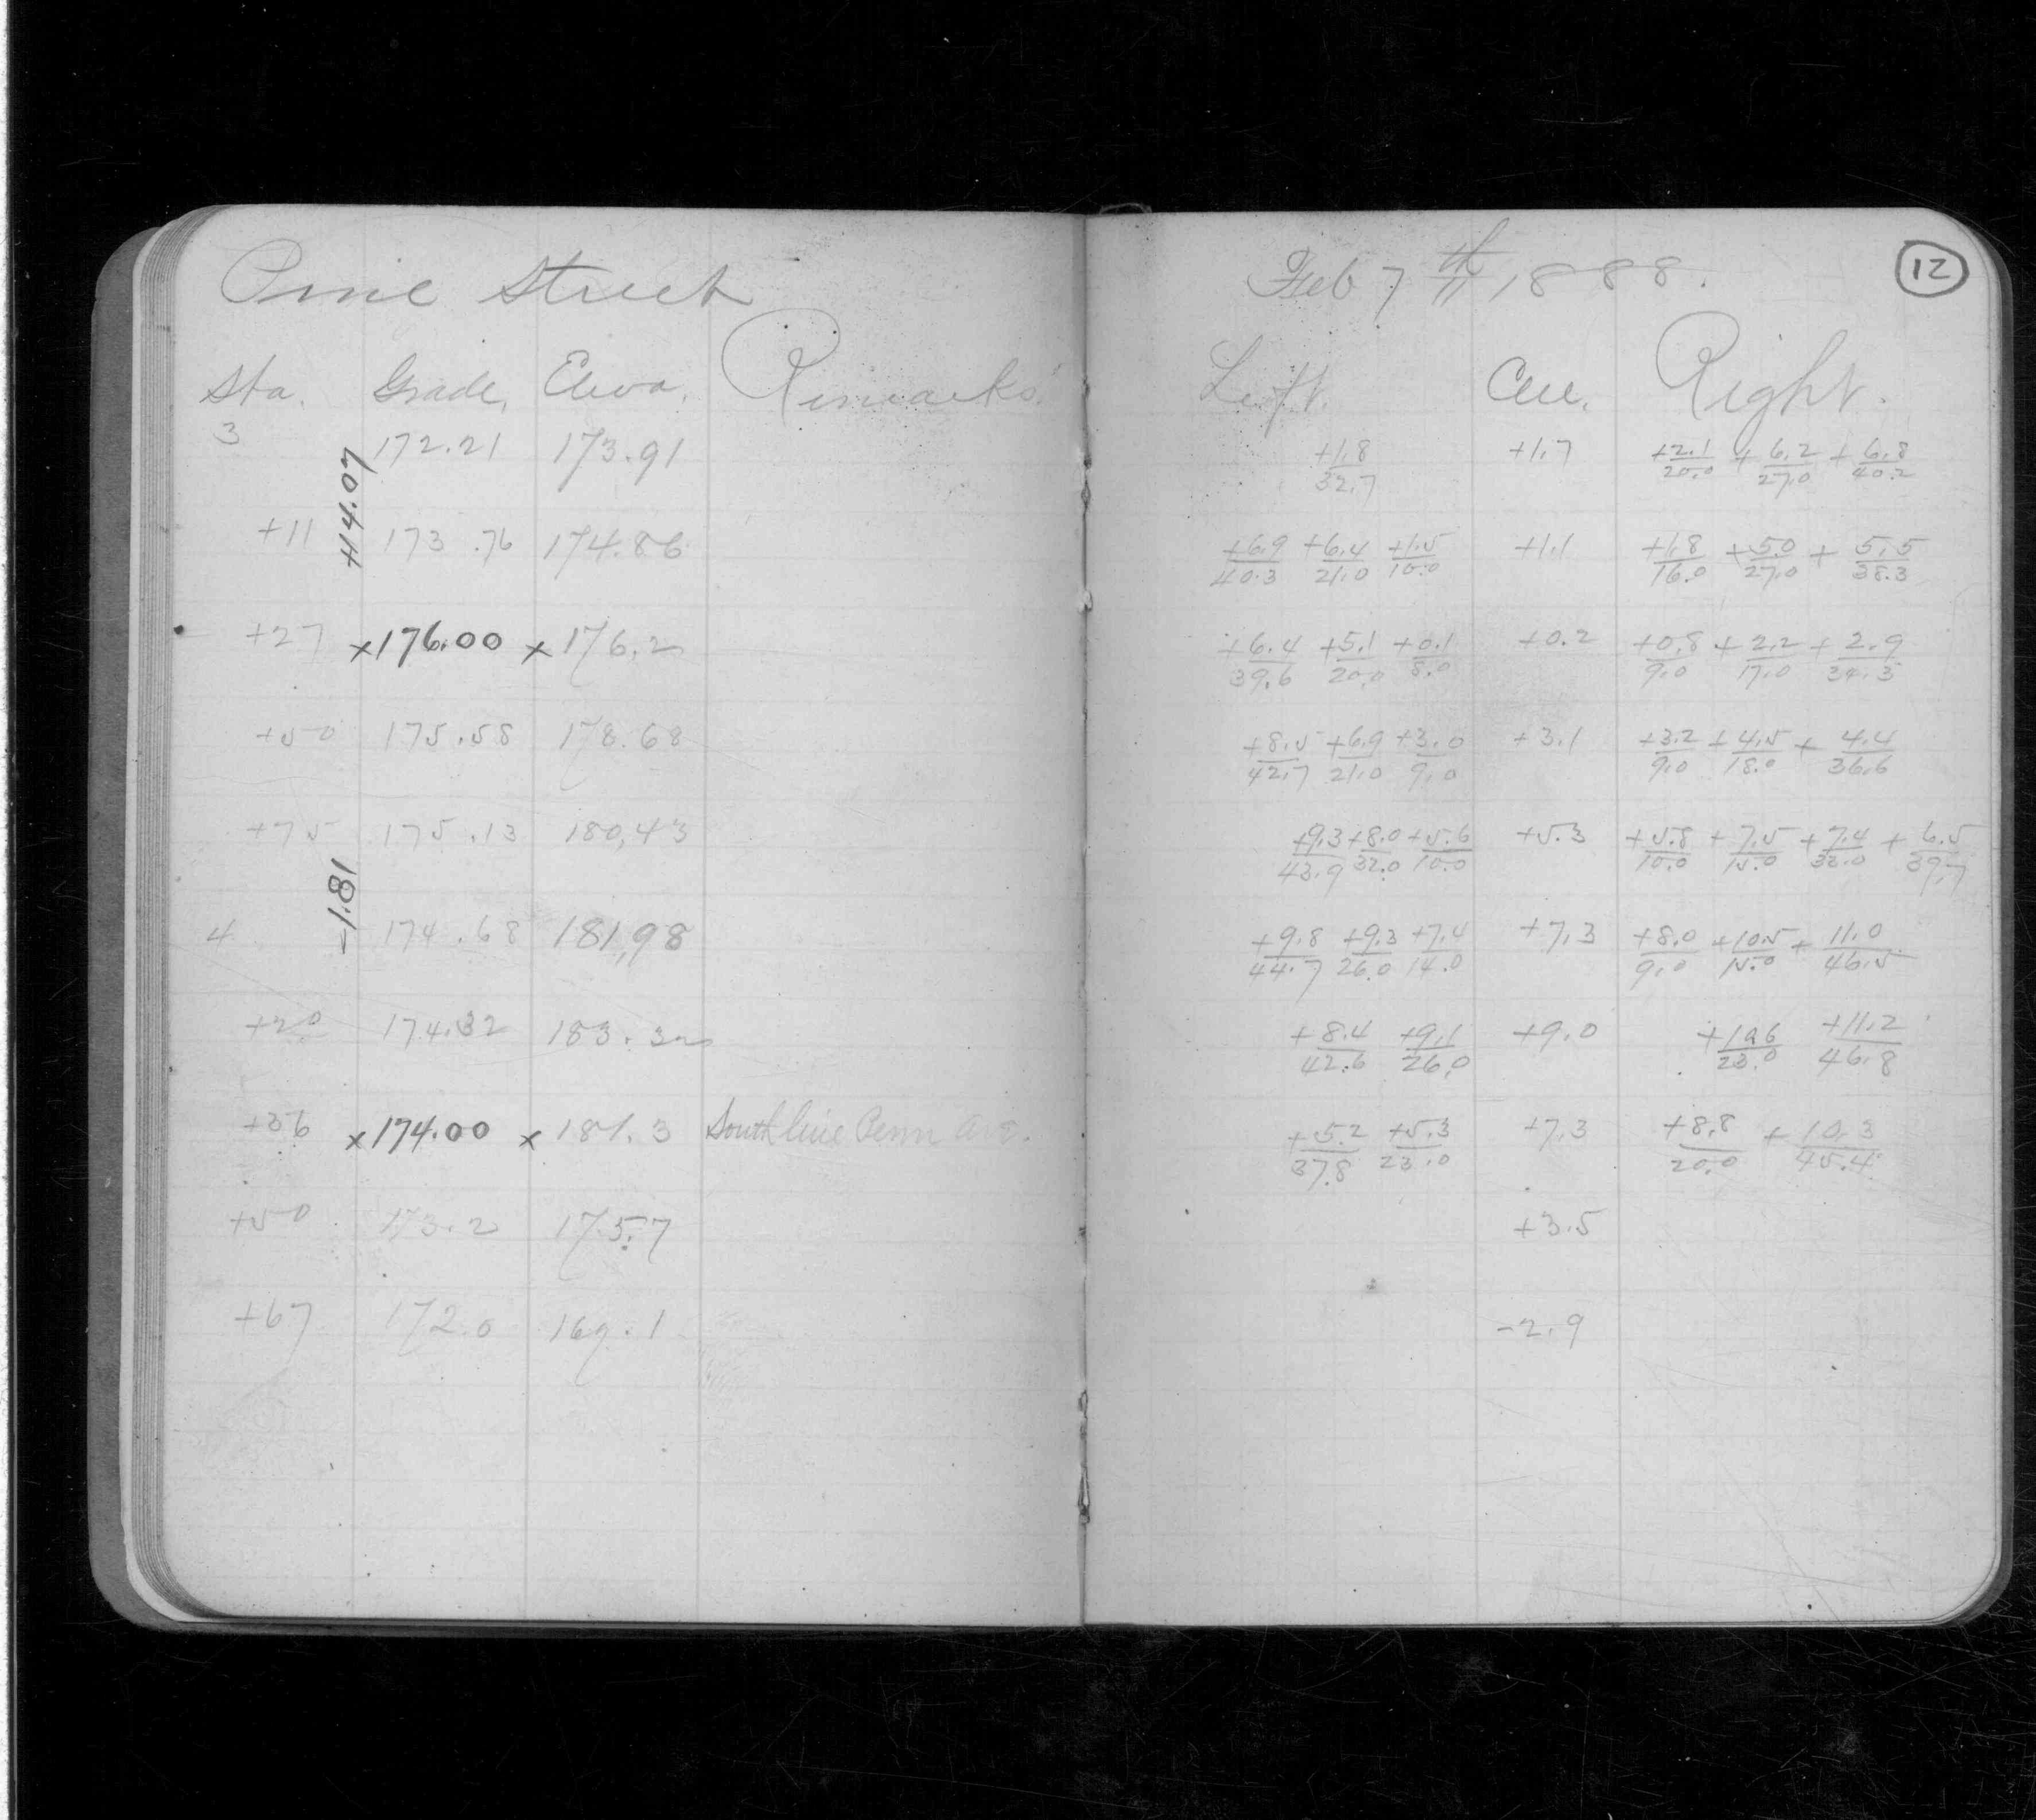 Pine Street
Feb 7th, 1888.
12
Sta. Grade, Eleva. Remarks
Left. Cen. Right.
3 172.21 173.91 +1.8/32.7 +1.7 +2.1/20.0 +6.2/27.0 +6.8/40.2
+14.07
+11 173.76 174.86 +6.9/40.3 +6.4/21.0 +1.5/10.0 +1.1 +1.8/16.0 +5.0/27.0 +5.5/38.3
+27 x176.00 x176.2 +6.4/39.6 +5.1/20.0 +0.1/8.0 +0.2 +0.8/9.0 +2.2/17.0 +2.9/34.3
+50 175.58 178.68 +8.5/42.7 +6.9/21.0 +3.0/9.0 +3.1 +3.2/9.0 +4.5/18.0 +4.4/36.6
+75 175.13 180,43 +9.3/43.9 +8.0/32.0 +5.6/10.0 +5.3 +5.8/10.0 +7.5/15.0 +7.4/32.0 +6.5/39.7
-1.81
4 174.68 181,98 +9.8/44.7 +9.3/26.0 +7.4/14.0 +7.3 +8.0/9.0 +10.5/15.0 +11.0/46.5
+20 174.32 183.32 +8.4/42.6 +9.1/26.0 +9.0 +10.6/23.0 +11.2/46.8
+36 x174.00 x181.3 South line Penn Ave. +5.2/37.8 +5.3/23.0 +7.3 +8.8/20.0 +10.3/45.4
+50 173.2 175.7 +3.5
+67 172.0 169.1 -2.9